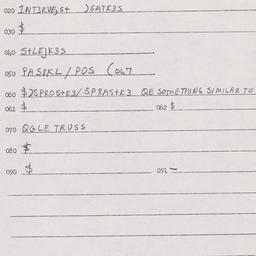 020 INT3RVE,S+ )GATE3S
030 $
040 S+LEJK3S
050 PAS3KL / POS (067
060 $)SPROS+E3/ SPRAS+E3 QE SOMETHING SIMILAR TO
061 $ 062 $
070 QGLE TRUSS
080 $
090 $ 091 –